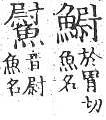 䲁
於胃切
魚名
音尉
魚名